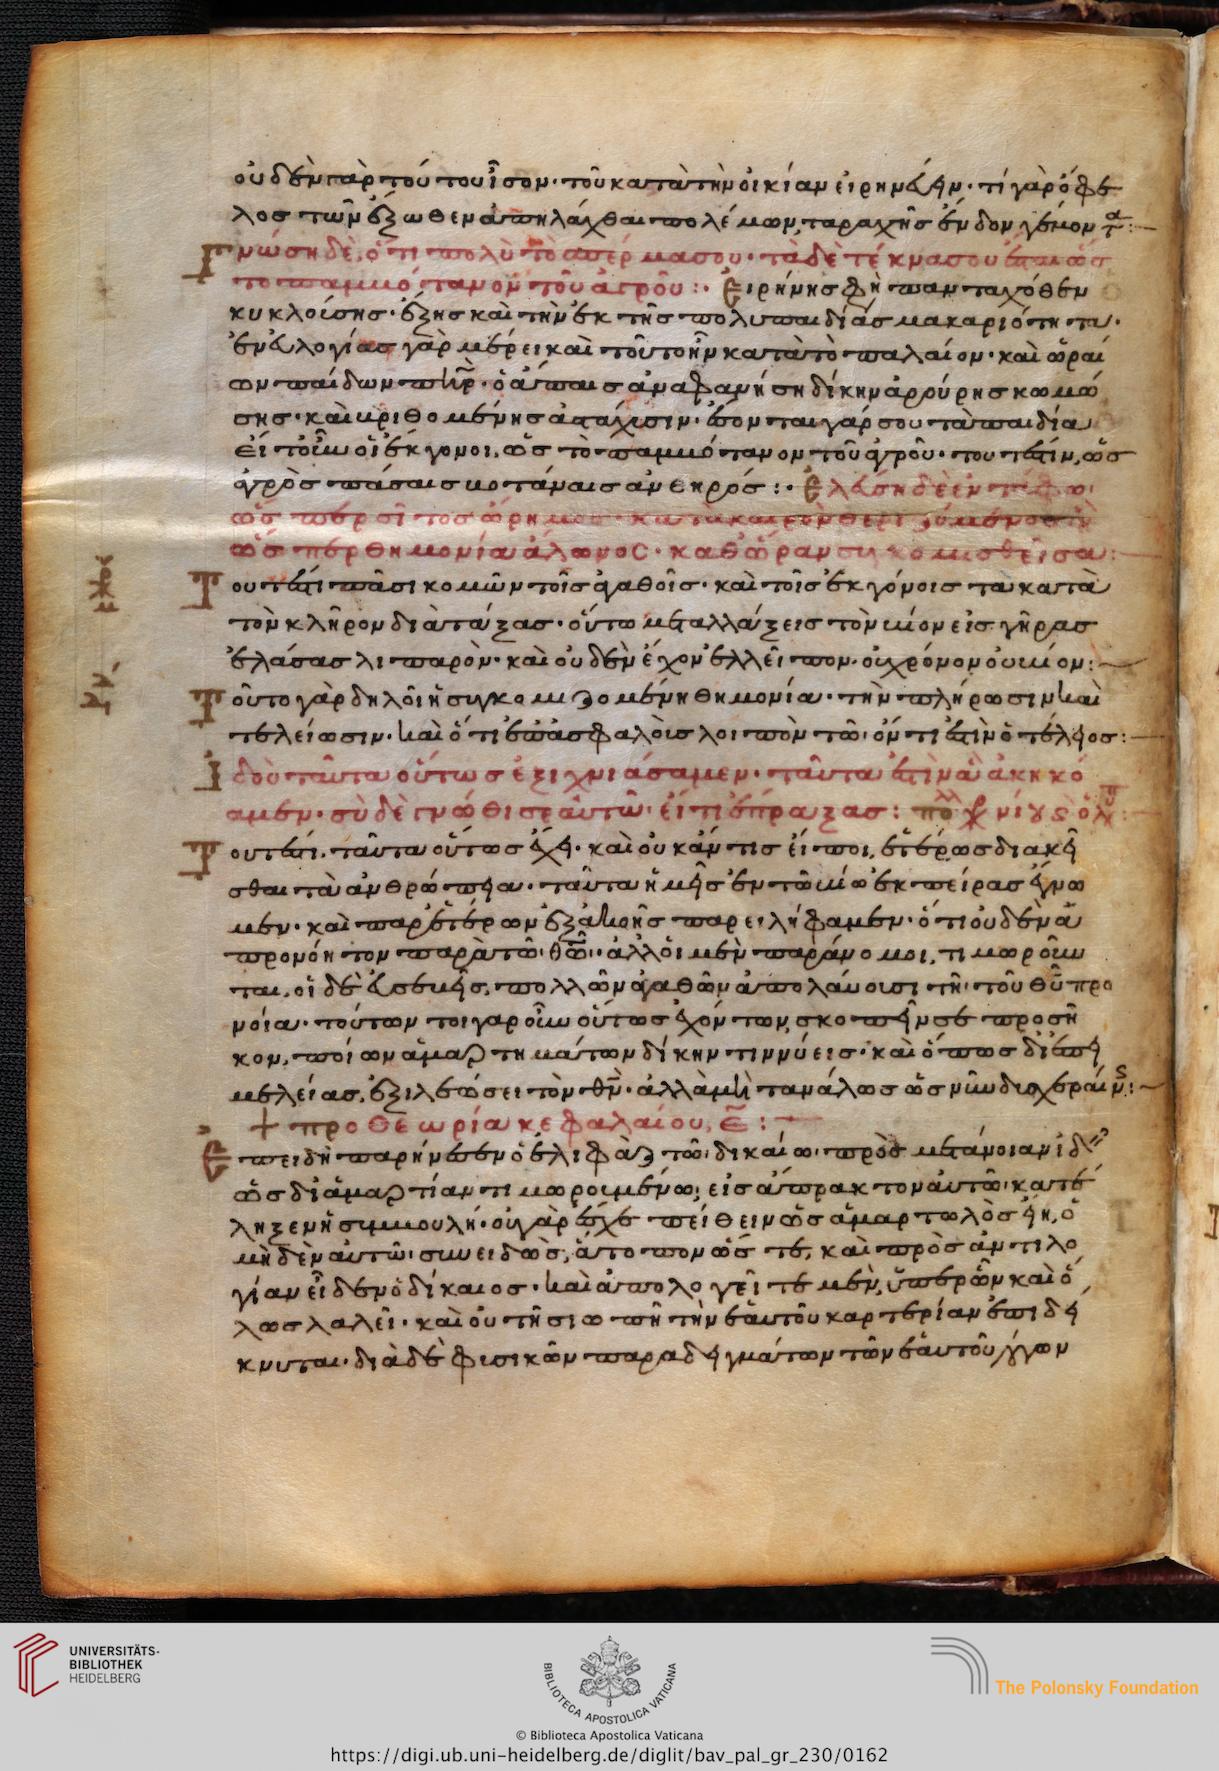 οὐδὲν παρ τούτου ἶσον· τοῦ κατὰ τὴν οἰκίαν εἰρηνεύειν· τί γὰρ ὄφε
λος τῶν ἔξωθεν ἀπηλάχθαι πολέμων, ταραχῆς ἔνδον γέμοντα:
Γνώση δὲ, ὅτι πολὺ τὸ σπέρμα σου· τὰ δὲ τέκνα σου ἔσται ὡς
τὸ παμμότανον τοῦ ἀγροῦ:· Εἰρήνης φὴ πανταχόθεν
κυκλοίσης· ἕξης καὶ τὴν ἐκ τῆς πολυπαιδίας μακαριότητα·
ἐν εὐλογίας γὰρ μέρει καὶ τοῦτο ἦν κατὰ τὸ παλαίον· καὶ ὡραί
ων παίδων πηρ· ὁ ἄπαις ἀναφανήση δίκην ἀρούρης κωμώ
σης· καὶ κριθομένης ἀσταχισιν· ἔσονται γάρ σου τὰ παιδία
εἰ τοῖνυ οἱ ἔκγονοι, ὡς τὸ παμμόταννον τοῦ ἀγροῦ· τουτἐστιν, ὡς
ἀγρὸς πάσαις κοτάναις ἀνθηρός:· Ελεύση δὲ ἐν τάφω·
ὡς περ σῖτος ὥρημος· κατὰ καιρὸν θεριζόμενος ἢ
ὡς περ θημονία ἅλωνος· καθ' ὥραν συγκομισθεῖσα:
Τουτέστι πᾶσι κομῶν τοῖς ἀγαθοῖς· καὶ τοῖς ἐκγόνοις τὰ κατὰ
τὸν κλῆρον διατάξας· οὕτω μεταλλάξεις τὸν βίον εἰς γῆρας
ἐλάσας λιπαρὸν· καὶ οὐδὲν ἔχον ἐλλεῖπον· οὐ χρόνον οὐ βίον:
Τοῦτο γὰρ δηλοῖ ἡ συγκομιζομένη θημονία· τὴν πλήρωσιν καὶ
τελείωσιν· καὶ ὅτι ἐπ' ἀσφαλὸις λοιπὸν τῶ ὄντι ἐστὶν ὁ τέλειος:
Ιδοὺ ταῦτα οὕτως ἐξιχνιάσαμεν· ταῦτα ἐστὶν ἃ ἀκηκό
αμεν· σὺ δὲ γνῶθι σεαυτῶ· εἴ τι ἔπραξας:
Τουτέστι. ταῦτα οὕτως ἔχει· καὶ οὐκ ἄν τις εἴποι, ἑτέρως διακεῖ
σθαι τὰ ἀνθρώπεια· ταῦτα ἡμεῖς ἐν τῶ βίω ἐκ πείρας ἔγνω
μεν· καὶ παρ' ἑτέρων ἐξ ἀκοῆς παρειλήφαμεν· ὅτι οὐδὲν ἀ
προνόητον παρὰ τῶ θῶ· ἀλλ' οἱ μὲν παράνομοι, τιμωροῦν
ται, οἱ δὲ εὐσεβεῖς, πολλῶν ἀγαθῶν ἀπολάυουσι τῆ τοῦ θῦ προ
νοία· τούτων τοιγαροῦν οὕτως ἐχόντων, σκοπεῖν σε προσῆ
κον, ποίων ἁμαρτημάτων δίκην τιννύεις· καὶ ὅπως δι' ἐπι
μελείας, ἐξιλεώσει τὸν θν· ἀλλὰ μὴ παναλως ὡς νῦν δυσχεραίνειν:
+ προθεωρία κεφαλαίου, Ε:
Επειδὴ παρήνεσεν ὁ ἐλιφὰζ τῶ δικαίω· πρὸς μετάνοιαν ἰδεῖν
ὡς δι' ἁμαρτίαν τιμωρουμένω, εἰς ἄπρακτον αὐτῶ· κατέ
ληξεν ἡ συμβουλή· οὐ γὰρ ἔσχε πείθειν ὡς ἁμαρτωλὸς εἴη, ὁ
μηδὲν αὐτῶ συνειδὼς, ἄτοπον ὥς τε, καὶ πρὸς ἀντιλο
γίαν εἶδεν ὁ δίκαιος· καὶ ἀπολογεῖτε μὲν, ὑπὲρ ὧν καὶ ὅ
λως λαλεῖ· καὶ οὐ τῆ σιωπῆ τὴν ἑαυτοῦ καρτερίαν ἐπιδεί
κνυται· διὰ δὲ φισικῶν παραδειγμάτων τῶν ἑαυτοῦ λόγων
UNIVERSITÄTS-
BIBLIOTHEK
HEIDELBERG
BIBLIOTECA APOSTOLICA VATICANA
The Polonsky Foundation
© Biblioteca Apostolica Vaticana
https://digi.ub.uni-heidelberg.de/diglit/bav_pal_gr_230/0162